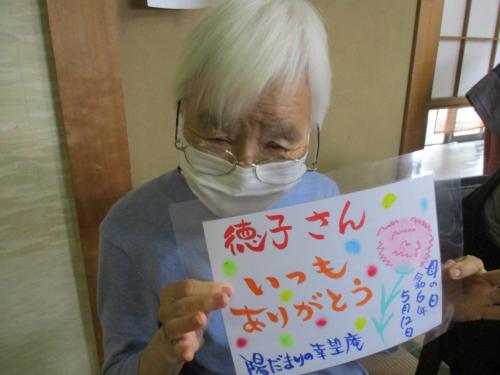 徳子さん
いつも
ありがとう
母の日
令和6年
5月12日
陽だまりの幸望庵